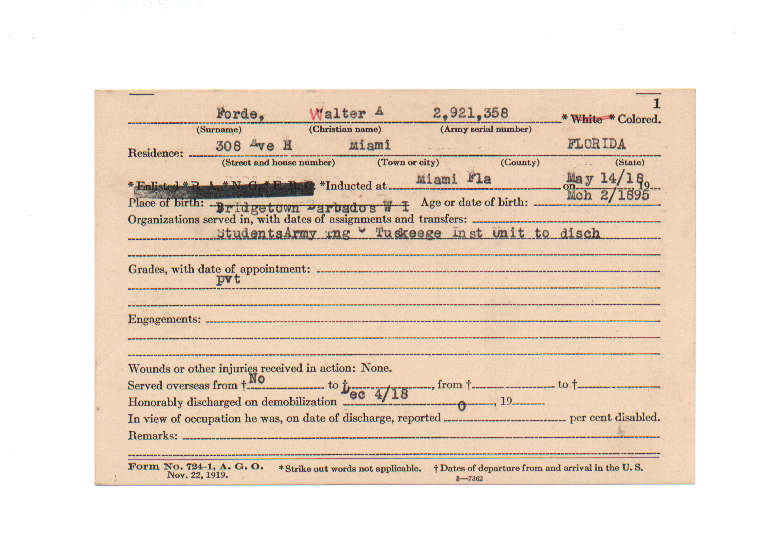 1
Forde, Walter A 2,921,358 * White * Colored.
(Surname) (Christian name) (Army serial number)
308 Ave H Miami FLORIDA
Residence:
(Street and house number) (Town or city) (County) (State)
* Enlisted * R. A. * N. G. * E. R. C. * Inducted at Miami Fla on May 14/18 19
Place of birth: Bridgetown Barbados W I Age or date of birth: Mch 2/1895
Organizations served in, with dates of assignments and transfers:
StudentsArmy Tng C Tuskeege Inst Unit to disch
Grades, with date of appointment:
pvt
Engagements:
Wounds or other injuries received in action: None.
Served overseas from † No to †, from † to †
Honorably discharged on demobilization Dec 4/18, 19
In view of occupation he was, on date of discharge, reported 0 per cent disabled.
Remarks:
Form No. 724-1, A. G. O. * Strike out words not applicable. † Dates of departure from and arrival in the U. S.
Nov. 22, 1919. 3—7362